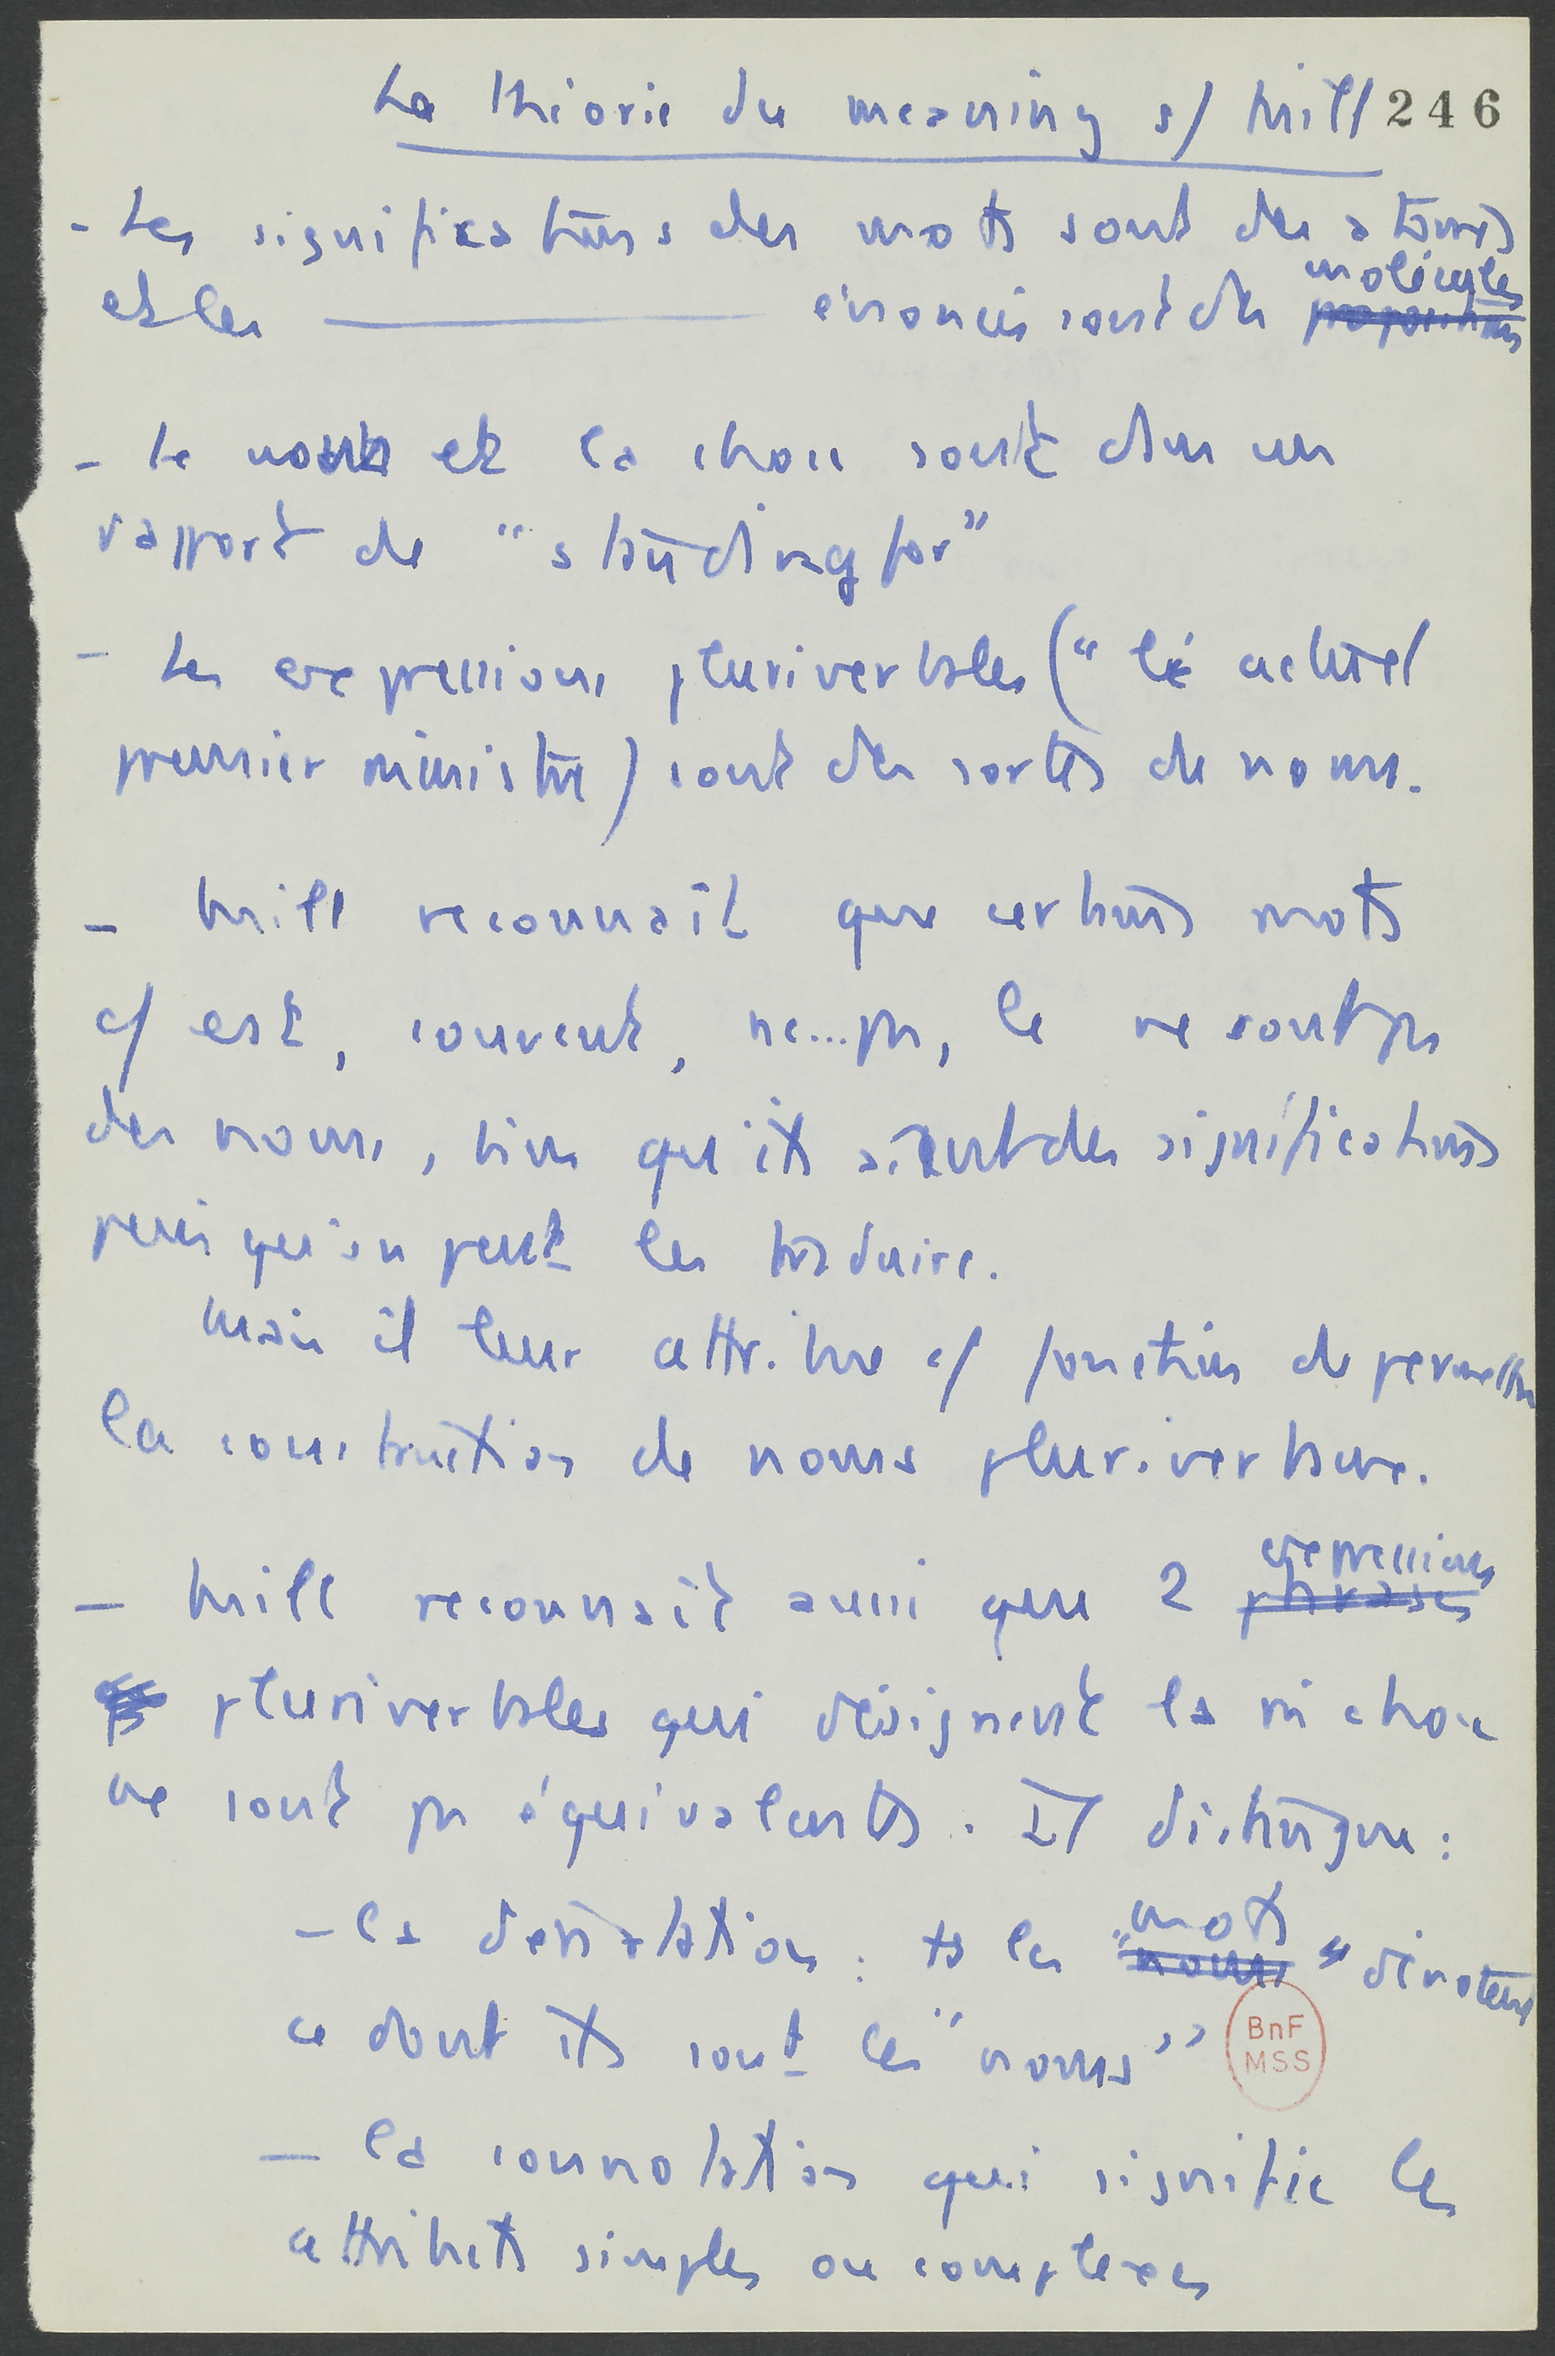 La théorie du meaning s/ Mill 246
- Les significations des mots sont des atomes
molécules
et les ———— énoncés sont des propositions
- Le nom et la chose sont dans un
rapport de "standing for"
- Les expressions pluriverbales ("le actuel
premier ministre) sont des sortes de noms.
- Mill reconnaît que certains mots
c/ est, souvent, ne...pas, le ne sont pas
des noms, bien qu'ils aient des significations
puisqu'on peut les traduire.
Mais il leur attribue c/ fonction de permettre
la construction de noms pluriverbaux.
expressions
- Mill reconnaît aussi que 2 phrases
pluriverbales qui désignent la m̂ chose
ne sont pas équivalents. Il distingue :
mots
- la dénotation : ts les "noms" dénotent
ce dont ils sont les "noms"
BnF
MSS
- la connotation qui signifie les
attributs simples ou complexes